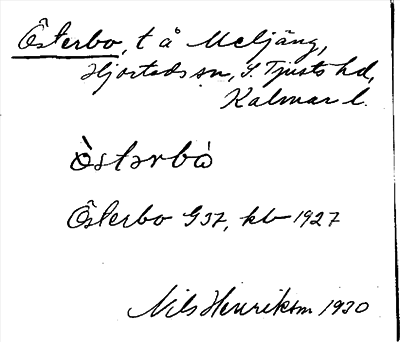 Österbo, t å Meljäng,
Hjorteds sn, S. Tjusts hd,
Kalmar l.
òstərbò
Österbo G37, kb 1927
Nils Henrikson 1930